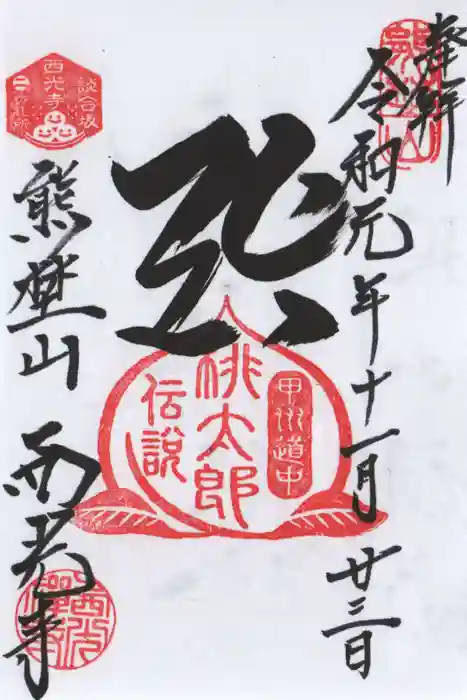 奉拝
令和元年十一月廿三日
甲州道中
桃太郎
伝説
談合坂
西光寺
熊埜山
西光寺